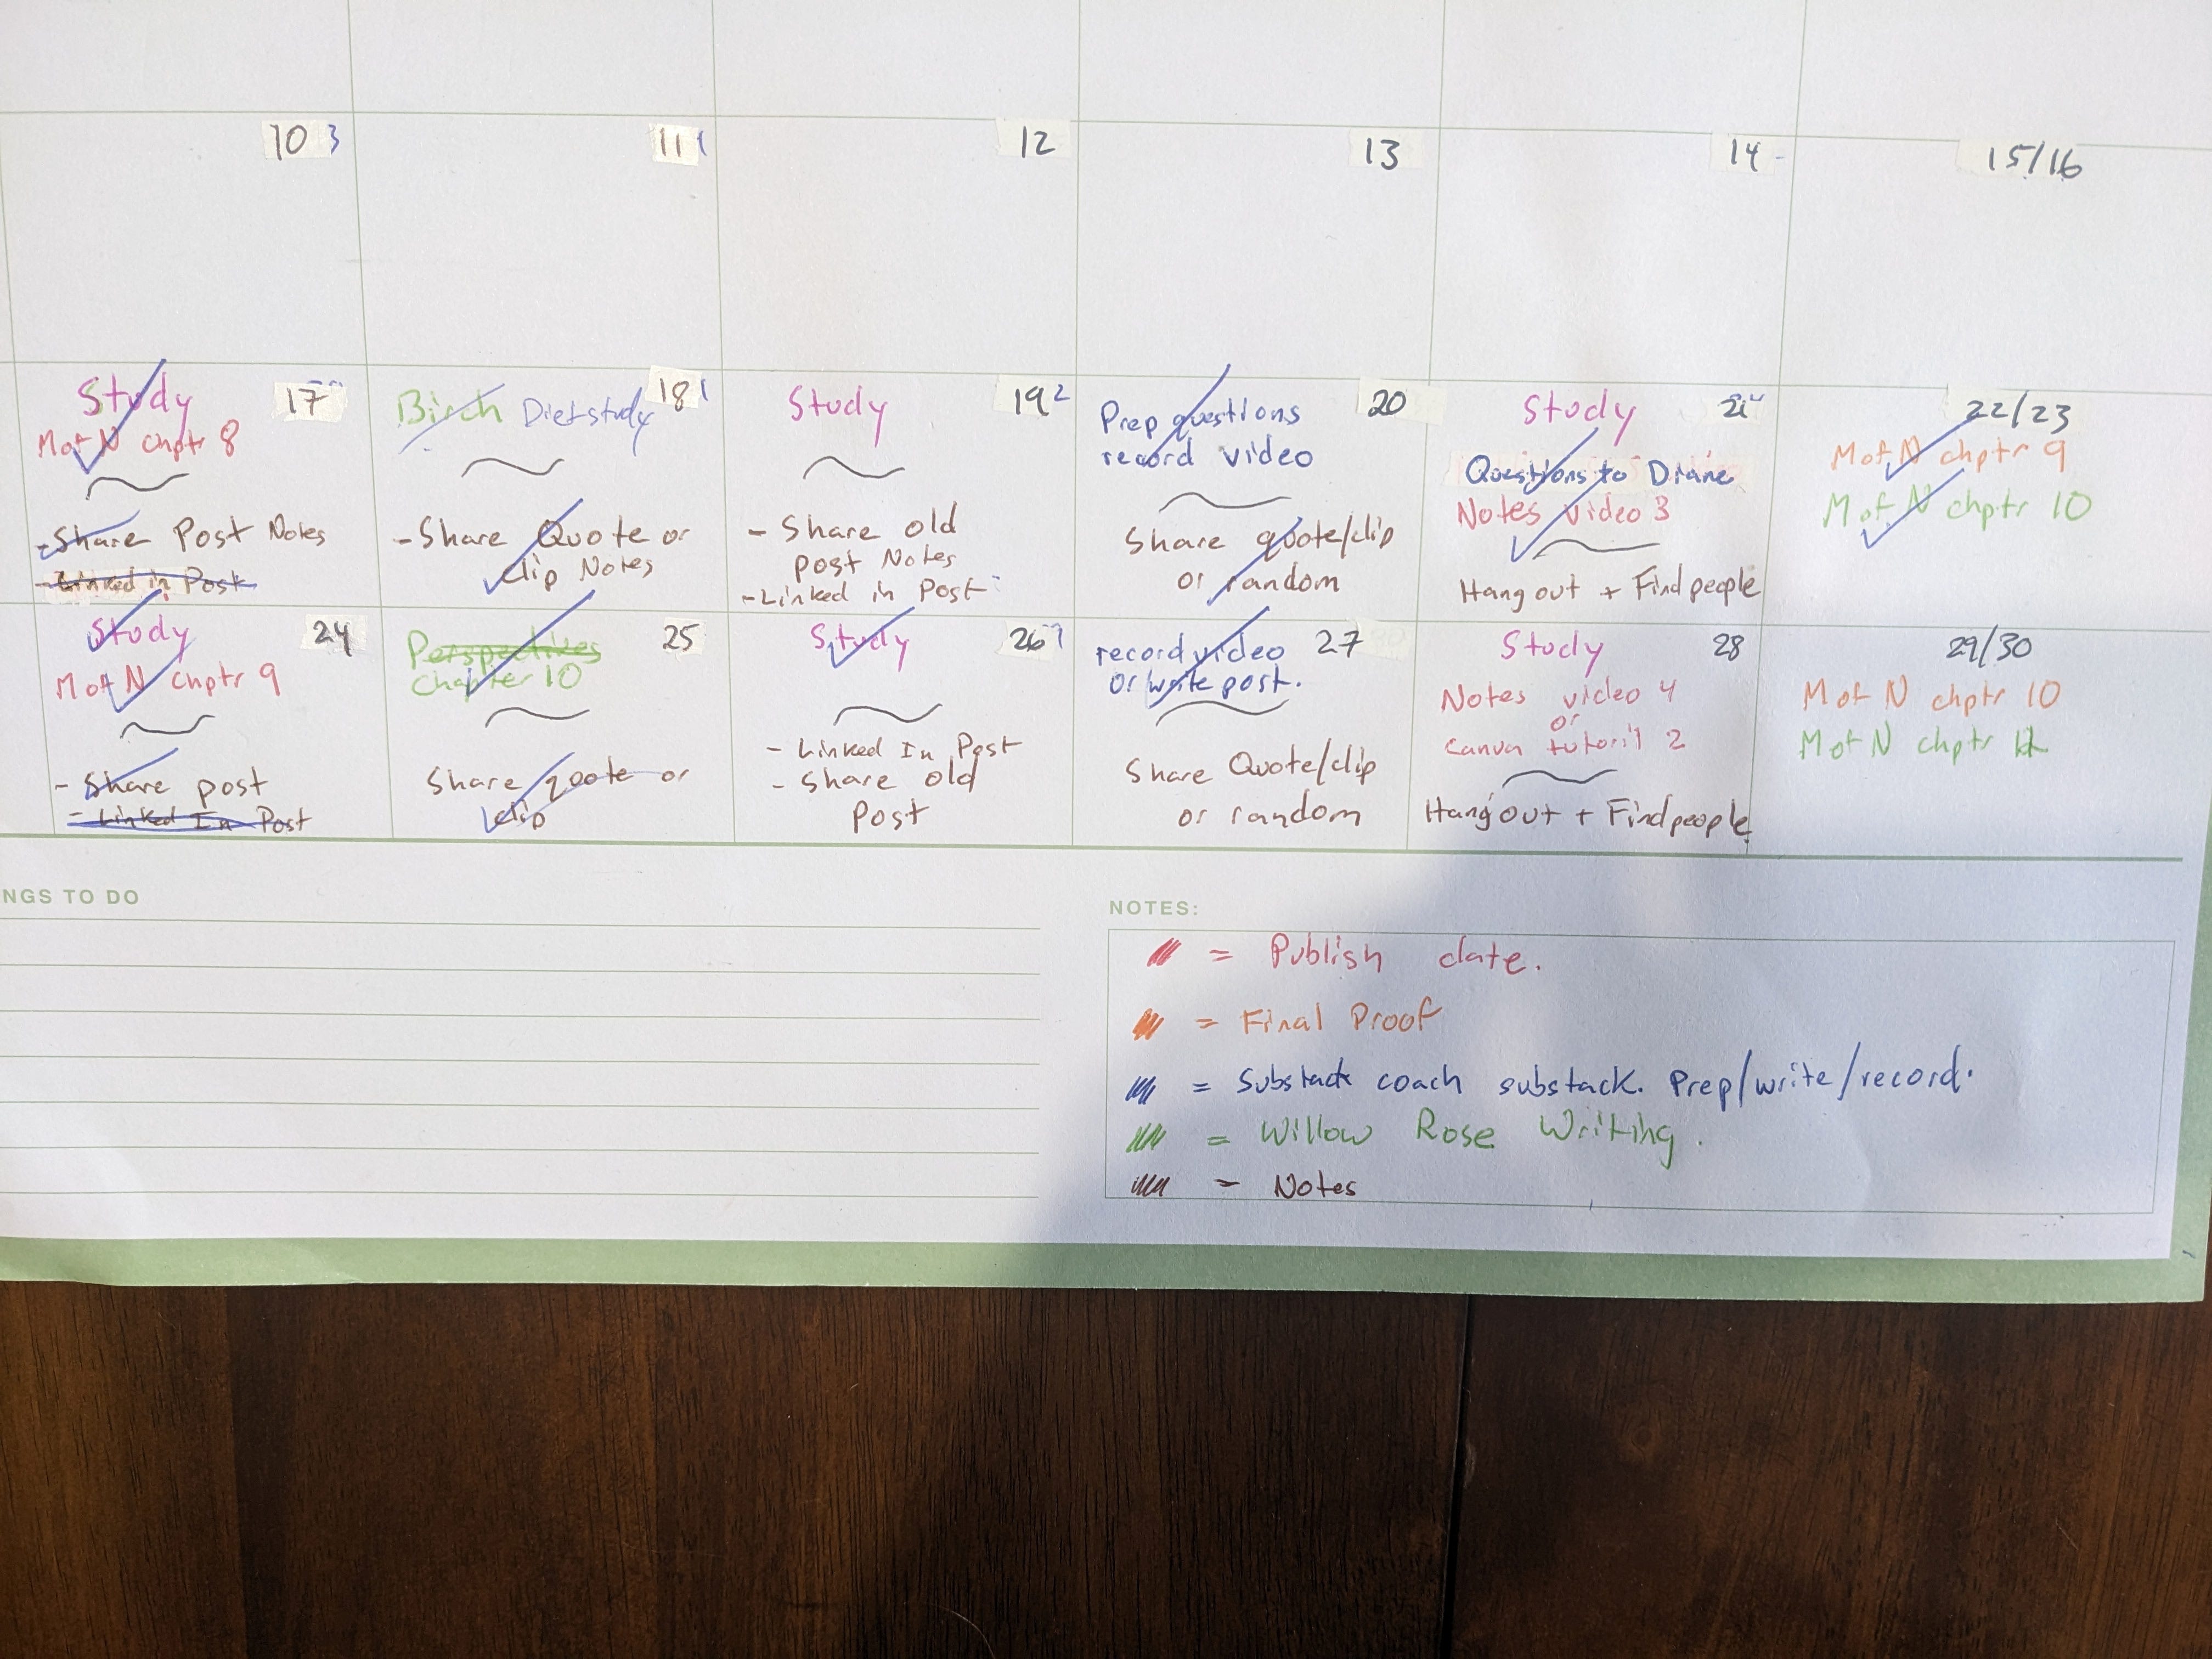 10 3
11 1
12
13
14 -
15/16
Study
17
Mof N chptr 8
- Share Post Notes
- Linked in Post
Birch Diet study
18 1
- Share Quote or
clip Notes
Study
19 2
- Share old
post Notes
- Linked in Post
Prep questions
20
record video
Share quote/clip
or random
Study
21
Questions to Diane
Notes video 3
Hang out + Find people
22/23
Mof N chptr 9
Mof N chptr 10
Study
24
Mof N chptr 9
- Share post
- Linked In Post
Perspectives
25
Chapter 10
Share quote or
clip
Study
26
- Linked In Post
- Share old
Post
record video
27
or write post.
Share Quote/clip
or random
Study
28
Notes video 4
or
canva tutoril 2
Hang out + Find people
29/30
Mof N chptr 10
Mof N chptr
NGS TO DO
NOTES:
= Publish date.
= Final Proof
= Substack coach substack. Prep/write/record.
= Willow Rose Writing.
= Notes